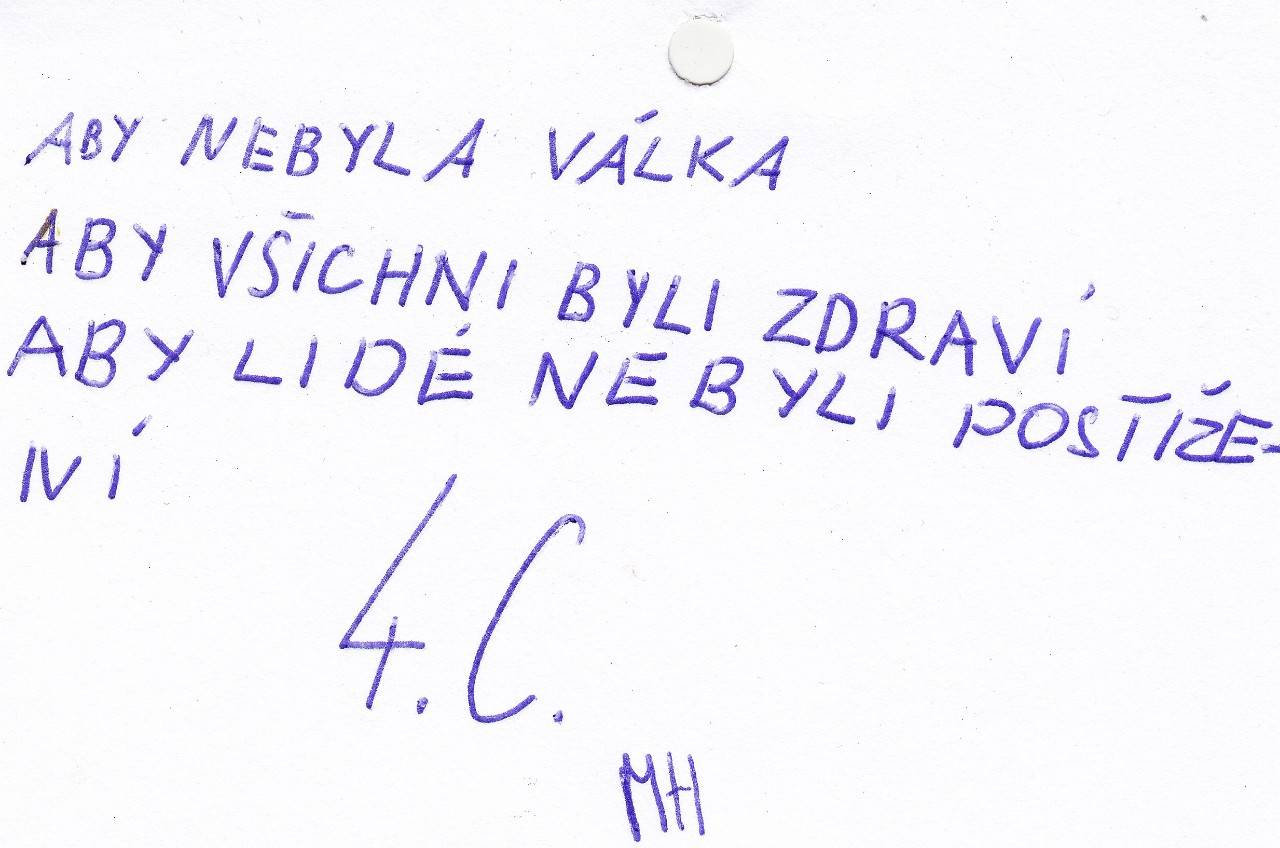 ABY NEBYLA VÁLKA
ABY VŠICHNI BYLI ZDRAVÍ
ABY LIDÉ NEBYLI POSTIŽE-
NÍ
4.C.
MH